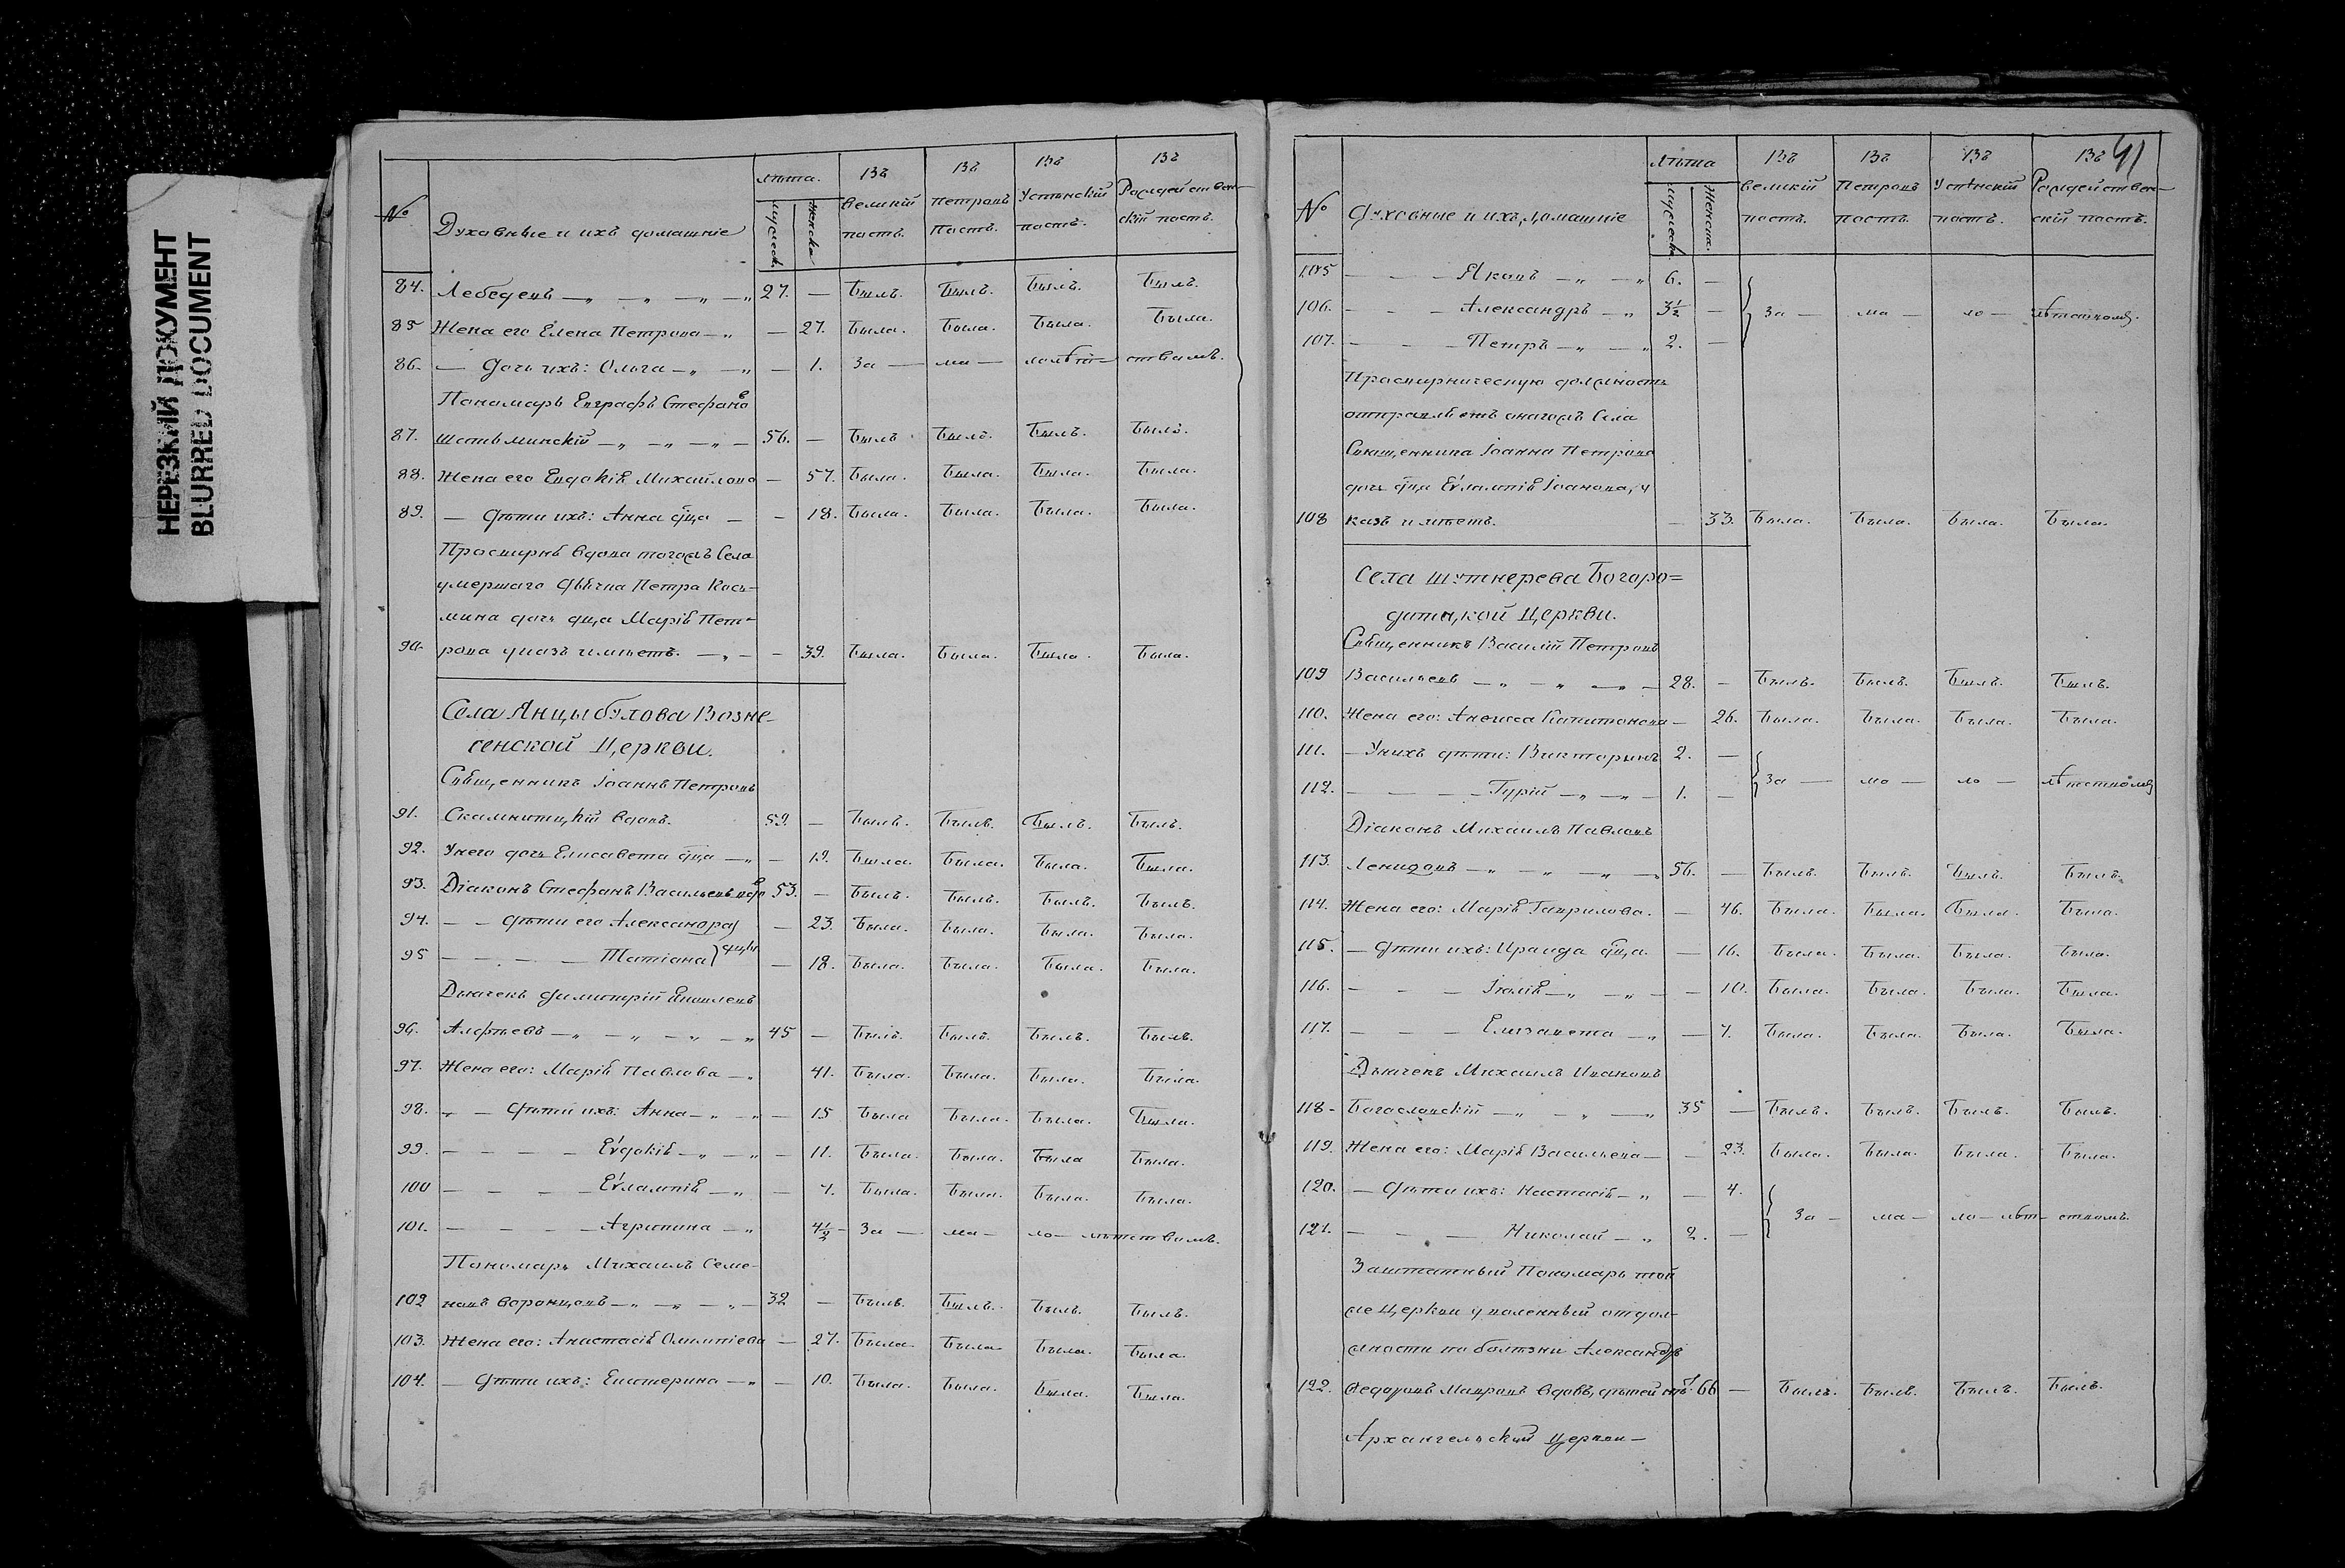 НЕРЕЗКИЙ ДОКУМЕНТ
BLURRED DOCUMENT
№ Духовные и ихъ домашніе лѣта. мужеск. женска Въ великій постъ. Въ Петровъ Постъ. Въ Успѣнскій постъ. Въ Рождейственскій постъ.
84. Лебедевъ — „ — „ — „ 27. — Былъ. Былъ. Былъ. Былъ.
85 Жена его Елена Петрова — „ — 27. Была. Была. Была. Была.
86. — Дочь ихъ: Ольга — „ — „ — 1. За — ма — лолѣт — ствомъ.
Пономарь Евграфъ Стефановъ
87. Шотьминскій — „ — „ — „ — 56. — Былъ Былъ. Былъ. Былъ.
88. Жена его Евдокія Михайлова — 57. Была. Была. Была. Была.
89. — Дѣти ихъ: Анна дѣца — — 18. Была. Была. Была. Была.
Просвирня вдова тогожъ Села
умершаго Дьячка Петра Кось-
мина дочь дца Марія Пет-
90. рова указъ имѣетъ. — „ — — 39. Была. Была. Была. Была.
Села Анцыбулова Возне-
сенской Церкви.
Священникъ Іоаннъ Петровъ
91. Скамницкій вдовъ. 59. — Былъ. Былъ. Былъ. Былъ.
92. У него дочь Елисавета дца — „ — 19. Была. Была. Была. Была.
93. Діаконъ Стефанъ Васильевъ вдовъ 53. — Былъ. Былъ. Былъ. Былъ.
94. — — Дѣти его Александра — 23. Была. Была. Была. Была.
95 — — — — Татіана } дцы — 18. Была. Была. Была. Была.
Дьячекъ Димитрій
96. Алфѣевъ — „ — „ — „ — „ 45 — Былъ. Былъ. Былъ. Былъ.
97. Жена его: Марія Павлова — „ 41. Была. Была. Была. Была.
98. „ — Дѣти ихъ: Анна — „ — „ — 15 Была Была. Была. Была.
99. — — — — Еѵдокія — „ — „ — 11. Была. Была. Была Была.
100 — — — — Еѵлампія — „ — 7. Была. Была. Была. Была.
101. — — — — Агрипина — „ 4½ — За — ма — ло — лѣтствомъ.
Пономарь Михаилъ Семе-
102 новъ Воронцовъ — „ — „ — „ — 32 — Былъ. Былъ. Былъ. Былъ.
103. Жена его: Анастасія Олимпіева — 27. Была. Была. Была. Была.
104. — Дѣти ихъ: Екатерина — „ — 10. Была. Была. Была. Была.
41
№ Духовные и ихъ домашніе лѣта мужеск. женска. Въ великій постъ. Въ Петровъ постъ. Въ Успѣнскій постъ. Въ Рождейственскій постъ.
105 — — — Яковъ — „ — „ 6. —
106. — — — Александръ — „ 3½ — } За — ма — ло — лѣтствомъ.
107. — — — Петръ — „ — „ 2. —
Просвирническую должность
отправляетъ оногожъ Села
Священника Іоанна Петрова
дочь дца Еѵлампія Іоанова, у
108 казъ имѣетъ. — 33. Была. Была. Была. Была.
Села Шутнерева Богоро=
дицкой Церкви.
Священникъ Василій Петровъ
109 Васильевъ — „ — „ — „ — 28. — Былъ. Былъ. Былъ. Былъ.
110. Жена его: Анфиса Капитонова — 26. Была. Была. Была. Была.
111. — У нихъ дѣти: Викторинъ 2. —
112. — — — — Гурій — „ — „ — 1. — } За — ма — ло — лѣтствомъ
Діаконъ Михаилъ Павловъ
113. Ленидовъ — „ — „ — „ — „ 56. — Былъ. Былъ. Былъ. Былъ.
114. Жена его: Марія Гаврилова. — 46. Была. Была. Была. Была.
115. — Дѣти ихъ: Ираида дца. — 16. Была. Была. Была. Была.
116. — — — Іюлія — „ — „ — — 10. Была. Была. Была. Была.
117. — — — Елизавета — „ — 7. Была. Была. Была. Была.
Дьячекъ Михаилъ Ивановъ
118 — Богословскій — „ — „ — „ 35 — Былъ. Былъ. Былъ. Былъ.
119. Жена его: Марія Васильева — — 23. Была. Была. Была. Была.
120. — Дѣти ихъ: Настасія — „ — 4.
121. — — — Николай — „ 2. — } За — ма — ло — лѣт — ствомъ.
Заштатный Пономарь той
же Церкви уволенный отдол-
жности по болѣзни Александръ
122. Федоровъ Мавровъ вдовъ, дѣтей нѣтъ 66 — Былъ. Былъ. Былъ. Былъ.
Архангельской Церкви —